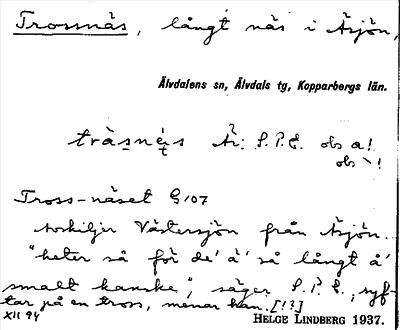 Trossnäs, långt näs i Åsjön,
Älvdalens sn, Älvdals tg, Kopparbergs län.
Är: S.P.E. obs a!
obs `!
Tross-näset G107
avskiljer Västersjön från Åsjön.
"heter så för de' ä' så långt å'
smalt kanske", säger S.P.E., syf-
tar på en tross, menar han. [!?]
XII 94
HELGE LINDBERG 1937.